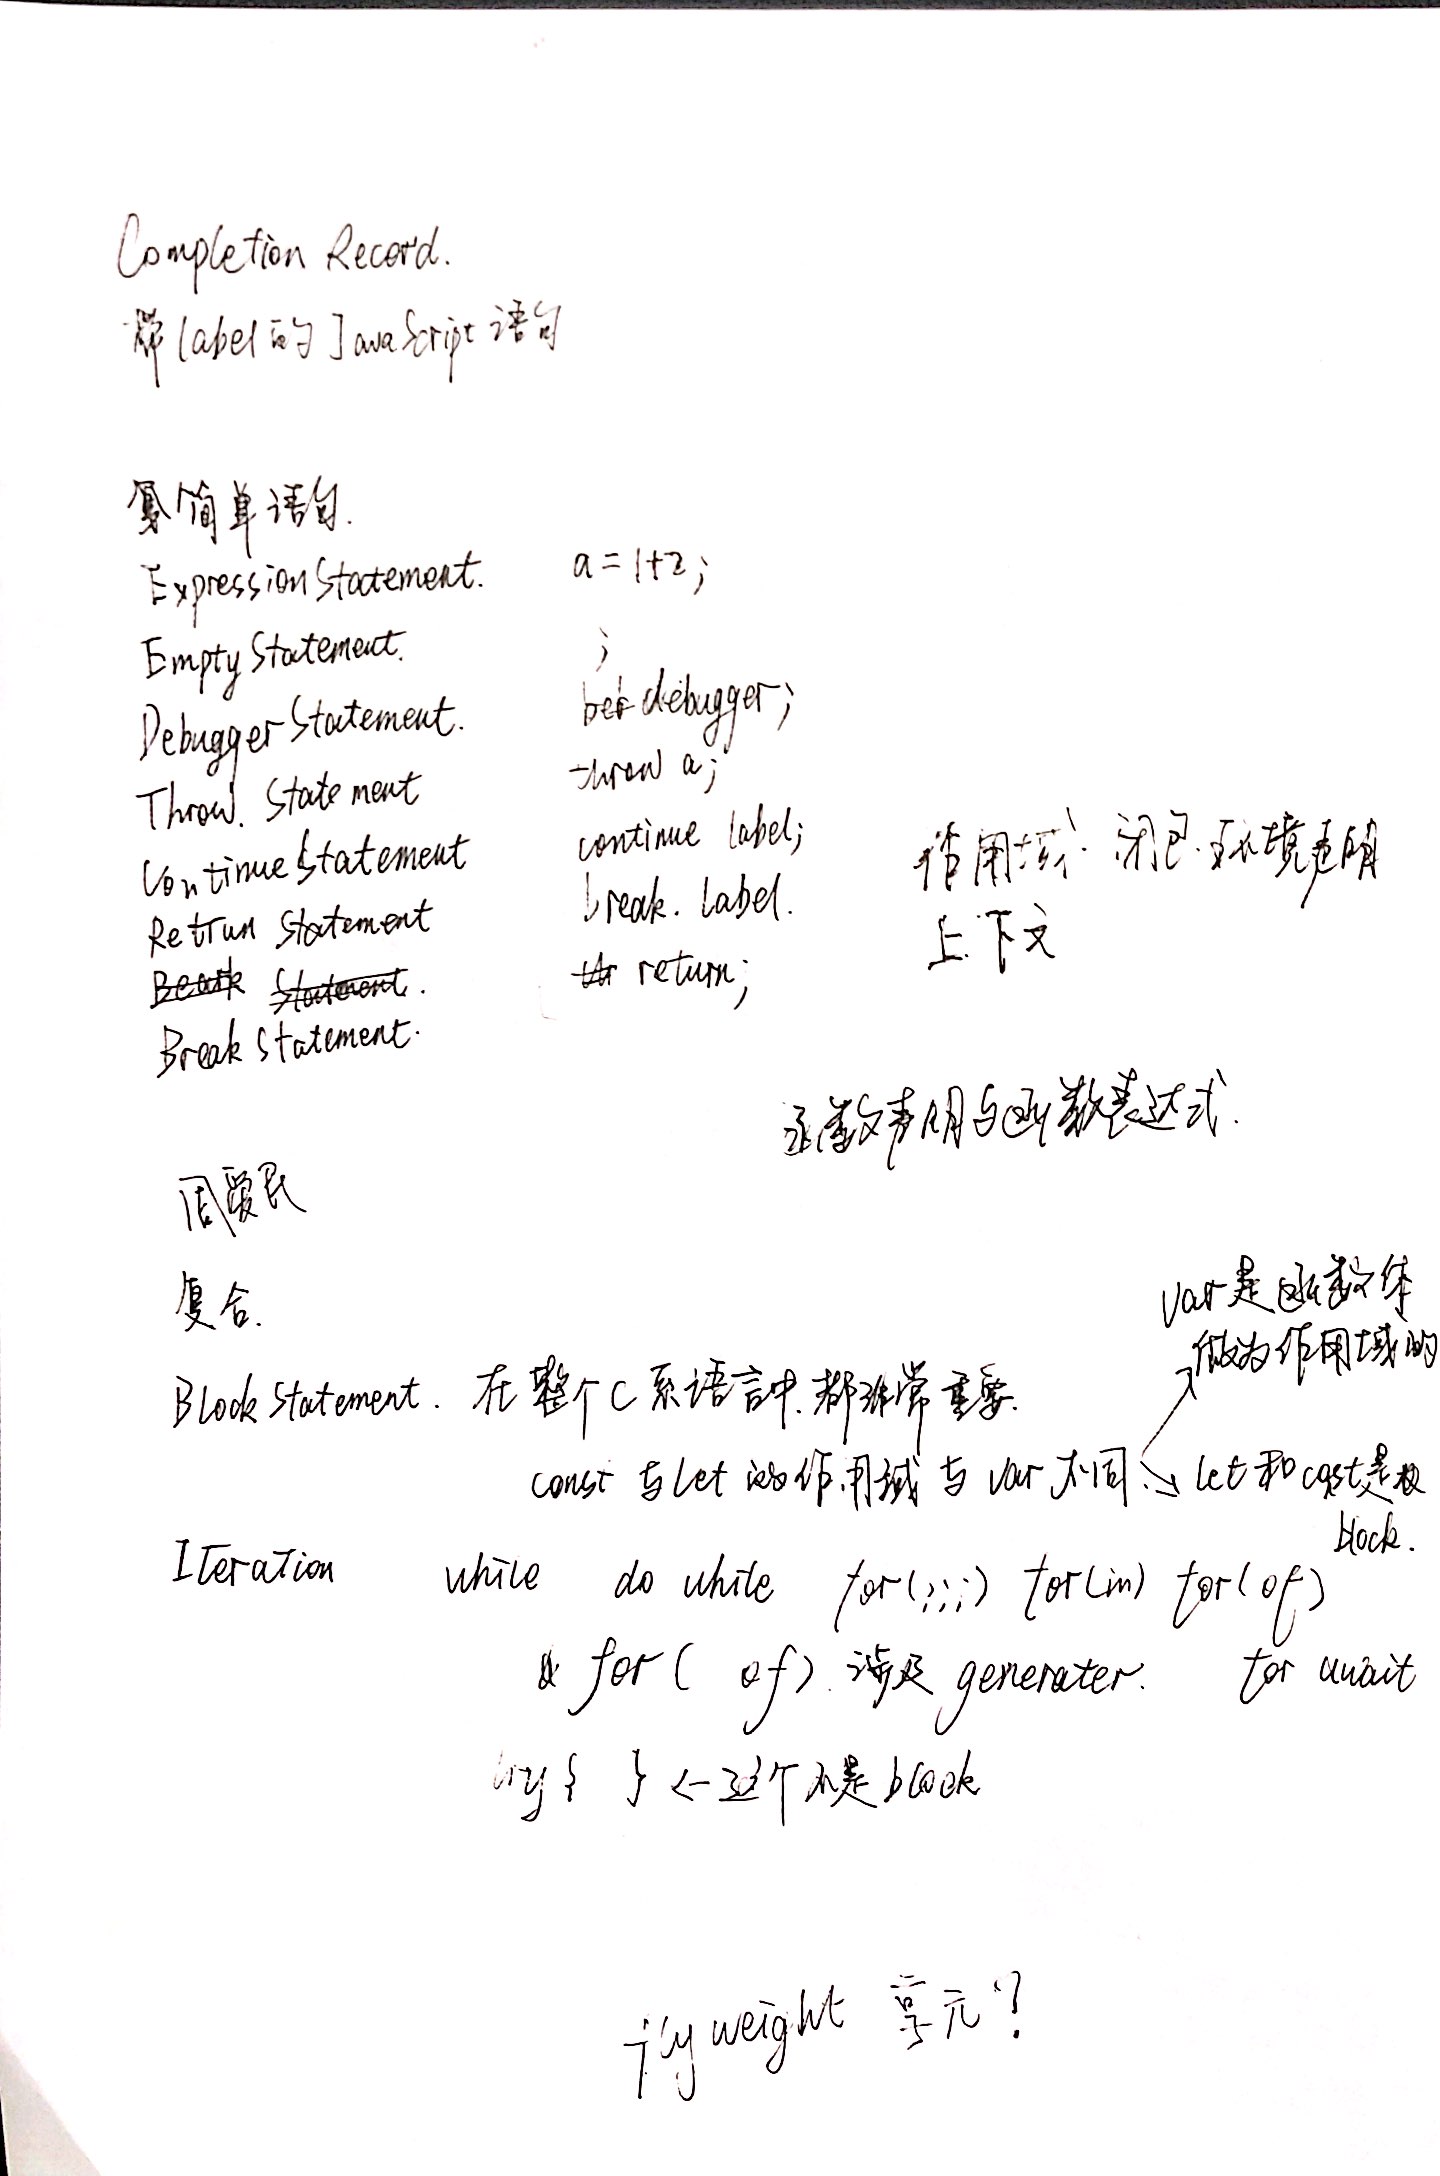 Completion Record.
带label的JavaScript语句
简单语句.
ExpressionStatement. a=1+2;
EmptyStatement. ;
DebuggerStatement. debugger;
Throw. Statement throw a;
ContinueStatement continue label;
Retrun Statement break. label.
Beark Statement. return;
BreakStatement.
作用域. 闭包.环境
上下文
函数声明与函数表达式.
周爱民
复合.
var是函数体
做为作用域的
BlockStatement. 在整个C系语言中.都非常重要.
const与let的作用域与var不同. let和cost是
block.
Iteration while do while for(;;;) for(in) for(of)
for( of). 涉及 generater. for await
try{ } ←这个不是block
flyweight 享元?